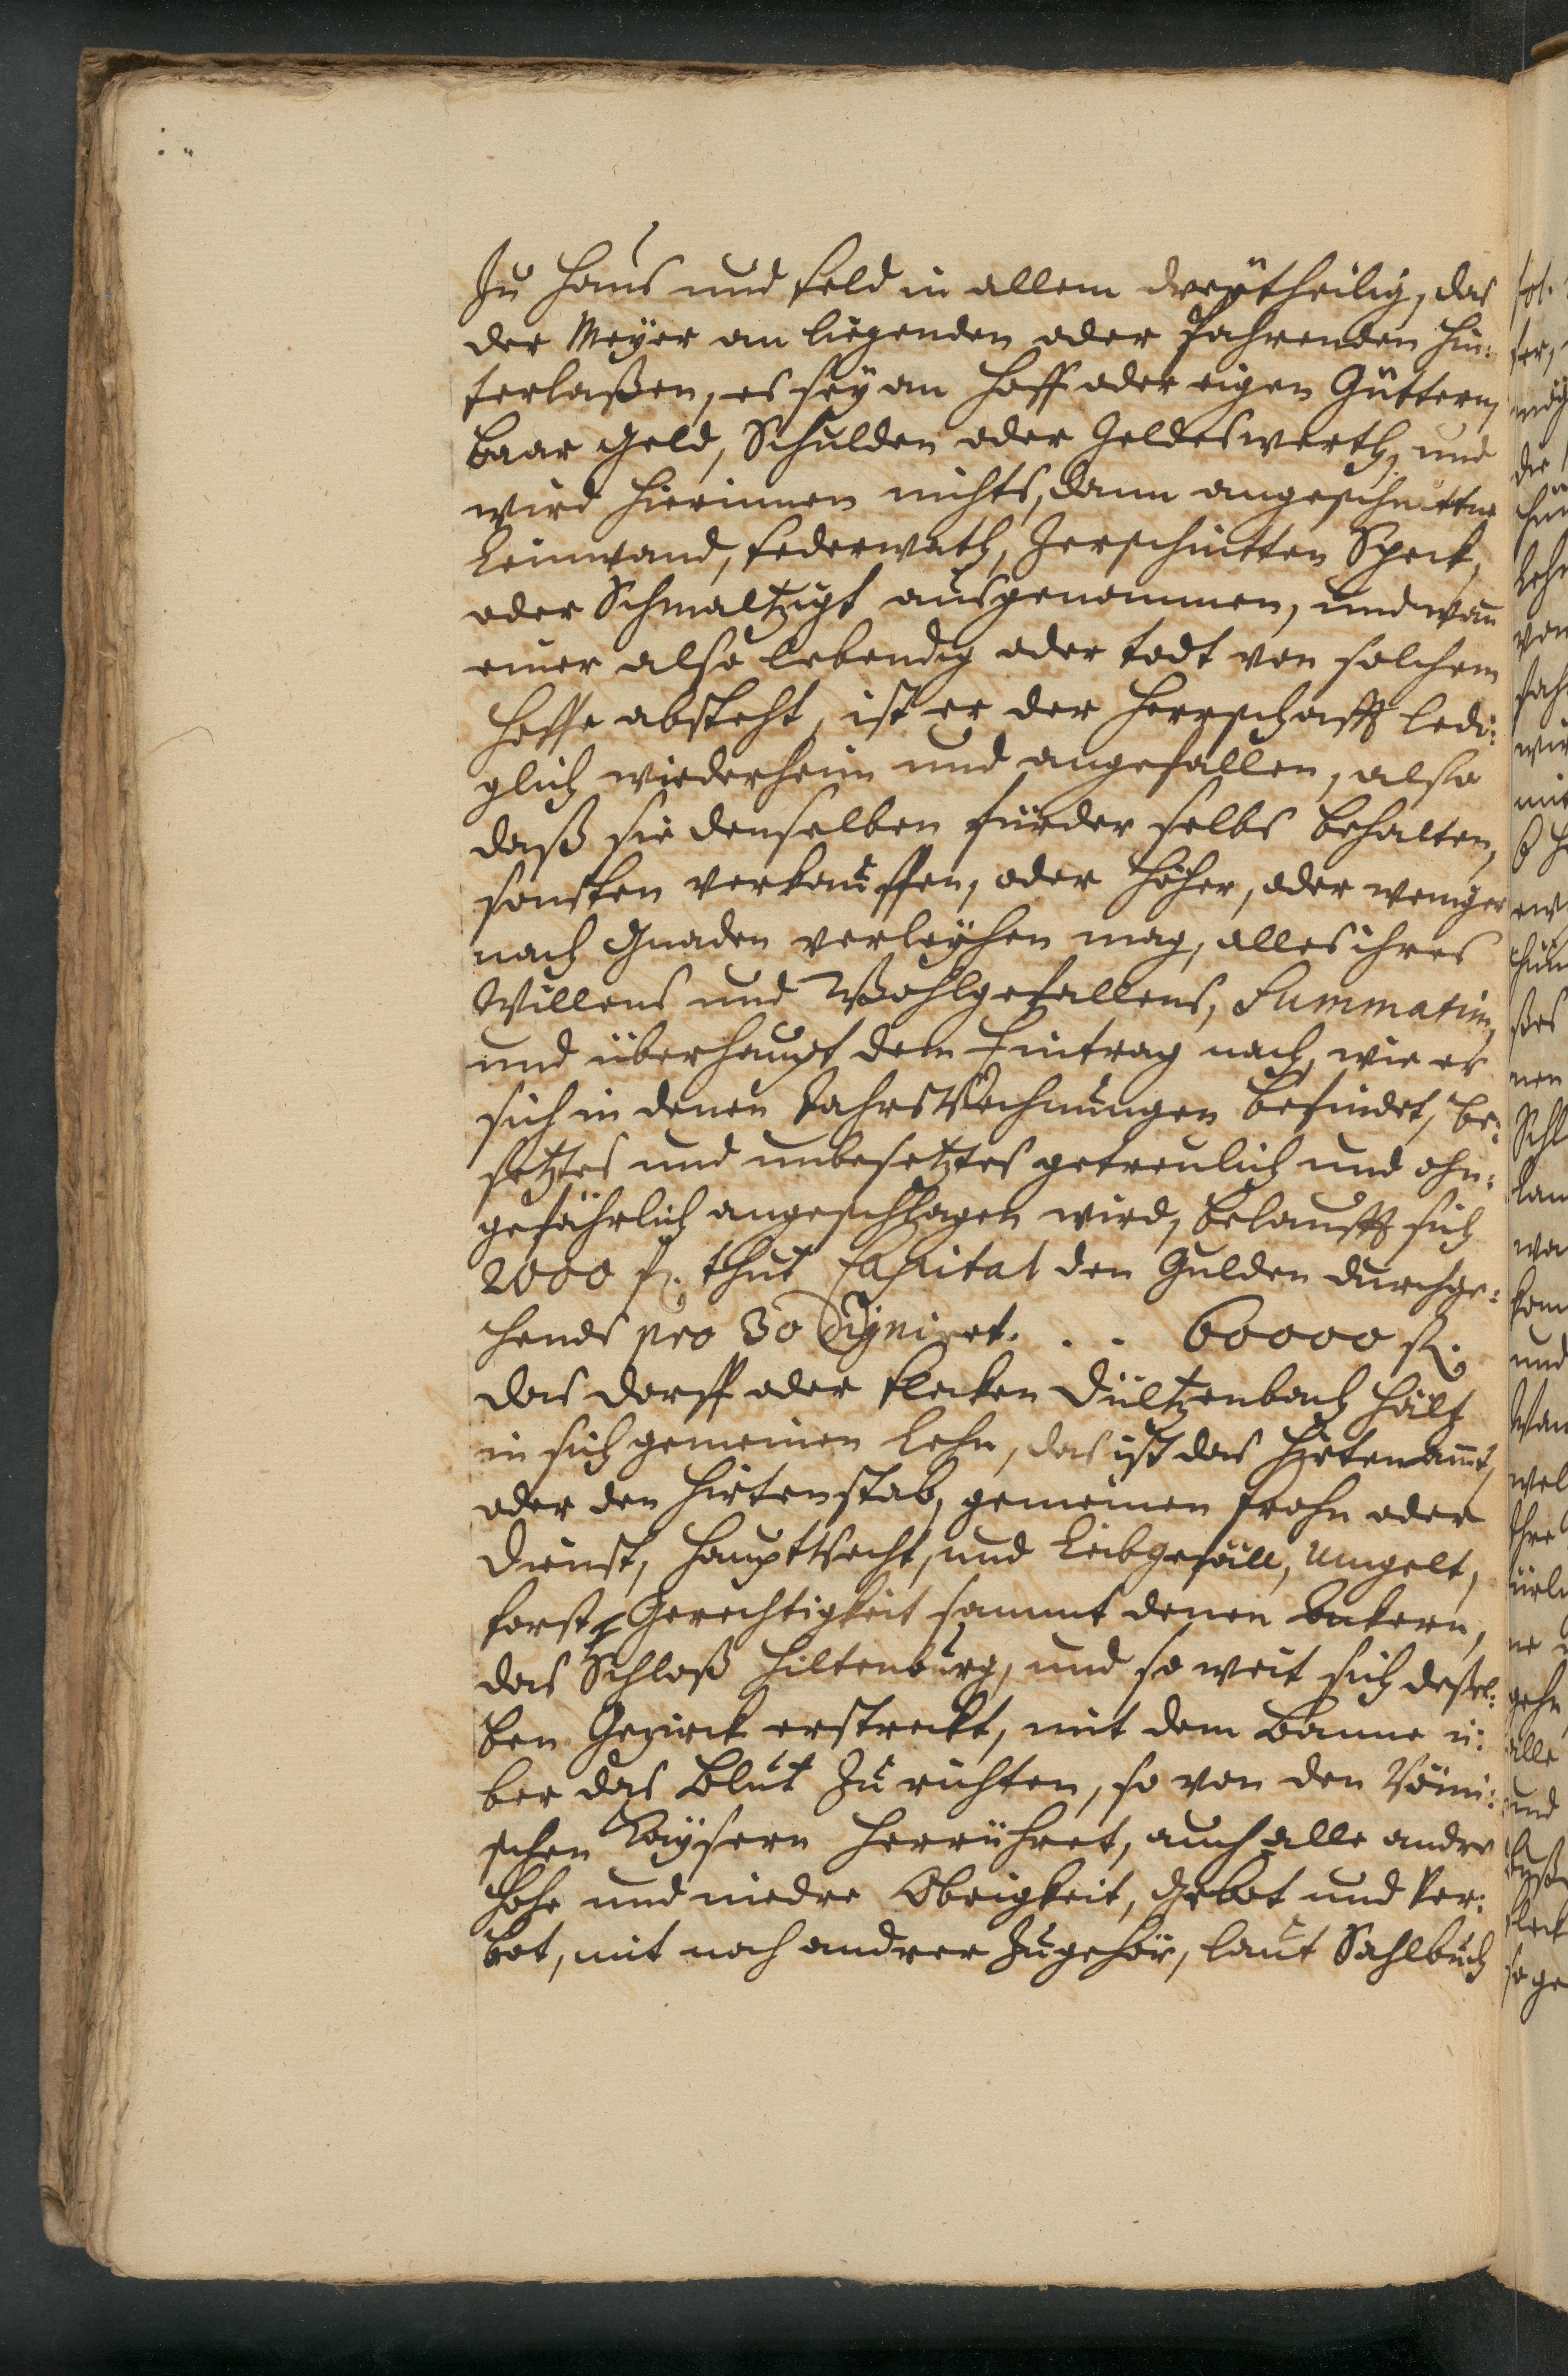 Zu Hauß und Feld in allem dreÿtheilig, das
der Meÿer an liegenden oder Fahrenden hin:
terlaßen, es seÿ an Hoff oder eigen Güttern,
baar Geld, Schulden oder Geldeswerth, und
wird hierinnen nichts, dann angeschnittne
Leinwand, Federwath, Zerschnitten Speck,
oder Schmaltz ausgenommen, und wan
einer also lebendig oder todt von solchem
Hoffe absteht, ist er der Herrschafft ledi:
glich wiederheim und angefallen, also
daß sie denselben fürder selbs behalten,
sonsten verkauffen, oder höher, oder weniger
nach Gnaden verleÿhen mag, alles ihres
Willens und Wohlgefallens, Summatim,
und überhaupt dem Eintrag nach, wie er
sich in denen JahrsRechnungen befindet, be:
setztes und unbesetztes getreulich und ohn:
gefährlich angeschlagen wird, belaufft sich
2000 fl. thut Capital den Gulden durchge:
hends pro 30 . . 60000 fl.
das Dorff oder Flecken Dültzenbach hält
in sich gemeinen Lehn, das ist das Hirtenammt,
oder den Hirtenstab, gemeinen Frohn oder
Dienst, Hauptrecht, und Leibgefäll, Umgelt,
Forst Gerechtigkeit sammt denen Eckern,
das Schloß Hiltenburg, und so weit sich deßel:
ben Gezirck erstreckt, mit dem Banne ü:
ber das Blut zu richten, so von den Römi:
schen Kaÿsern herrühret, auch alle andre
hohe und niedre Obrigkeit, Gebot und Ver:
bot, mit noch andrer Zugehör, laut Sahlbuch